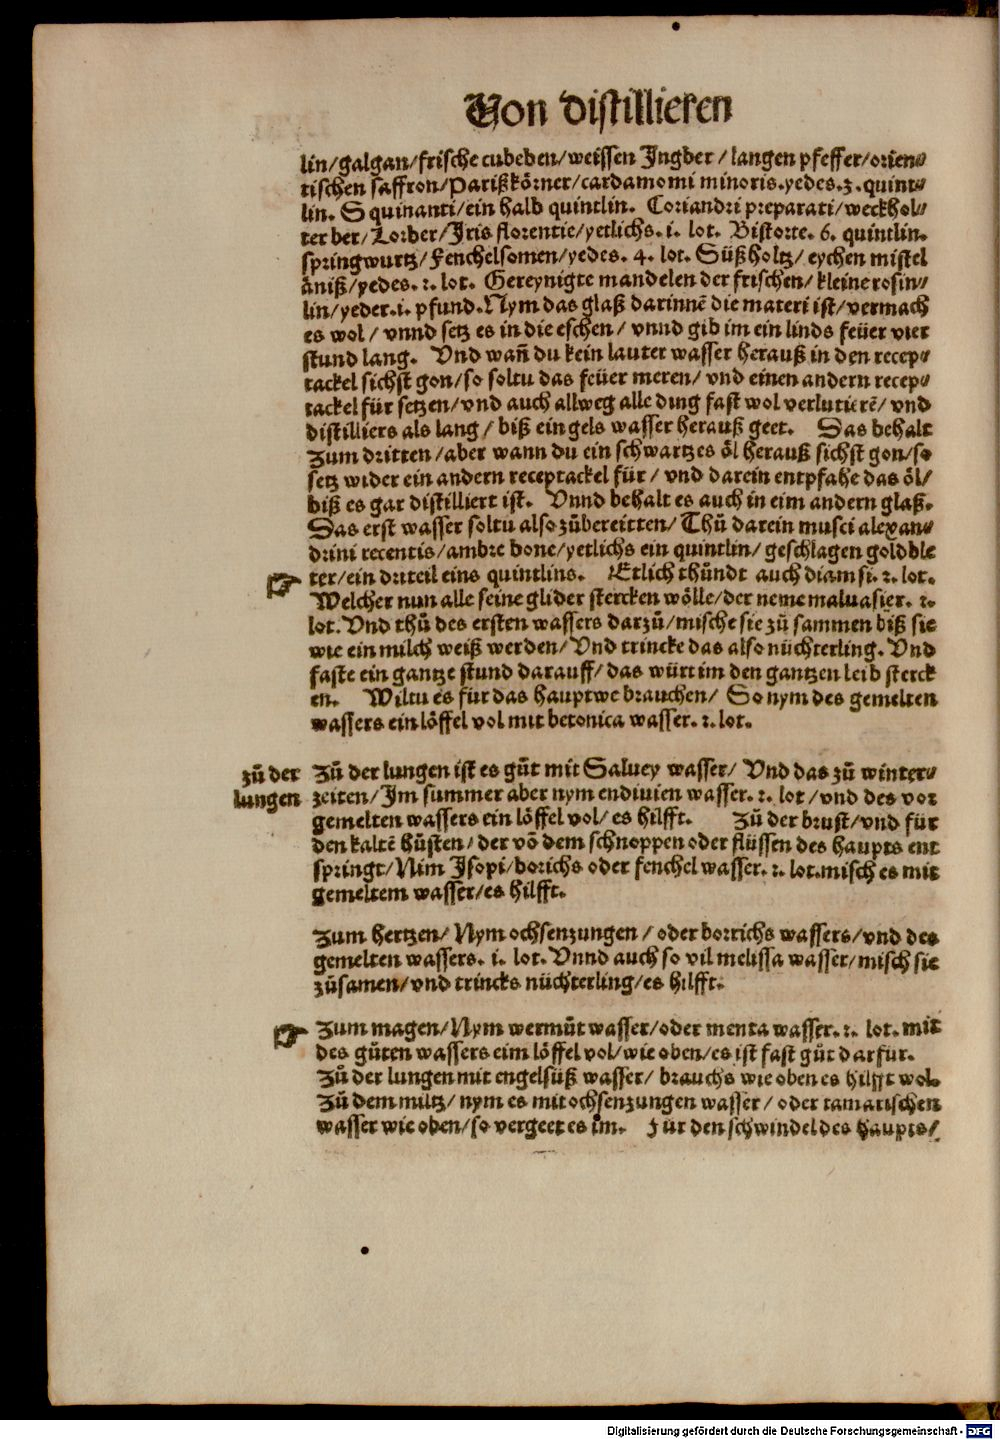 Von distillieren
lin/galgan/frische cubeben/weissen Jngber/langen pfeffer/orien⸗
tischen saffron/Parißkörner/cardamomi minoris.yedes.3.quint⸗
lin. Squinanti/ein halb quintlin. Coriandri preparati/weckhol⸗
ter ber/Lorber/Jris florentie/yetlichs.i. lot. Bistorte. 6. quintlin.
springwurtz/Fenchelsomen/yedes. 4. lot. Süßholtz/eychen mistel
äniß/yedes.2.lot. Gereynigte mandelen der frischen/kleine rosin⸗
lin/yeder.i.pfund.Nym das glaß darinnē die materi ist/vermach
es wol/vnnd setz es in die eschen/vnnd gib im ein linds feüer vier
stund lang. Vnd wañ du kein lauter wasser herauß in den recep⸗
tackel sichst gon/so soltu das feüer meren/vnd einen andern recep⸗
tackel für setzen/vnd auch allweg alle ding fast wol verlutierē/vnd
distilliers als lang/biß ein gels wasser herauß geet. Das behalt
zum dritten/aber wann du ein schwartzes öl herauß sichst gon/so
setz wider ein andern receptackel für/vnd darein entpfahe das öl/
biß es gar distilliert ist. Vnnd behalt es auch in eim andern glaß.
Das erst wasser soltu also zůbereitten/Thů darein musci alexan⸗
drini recentis/ambre bone/yetlichs ein quintlin/geschlagen goldble
ter/ein driteil eins quintlins. Etlich thůndt auch diamsi.2.lot.
Welcher nun alle seine glider stercken wölle/der neme maluasier. 2.
lot.Vnd thů des ersten wassers darzů/mische sie zů sammen biß sie
wie ein milch weiß werden/Vnd trincke das also nüchterling.Vnd
faste ein gantze stund darauff/das würt im den gantzen leib sterck
en. Wiltu es für das hauptwe brauchen/So nym des gemelten
wassers ein löffel vol mit betonica wasser.2.lot.
zů der
lungen
Zů der lungen ist es gůt mit Saluey wasser/Vnd das zů winter⸗
zeiten/Jm summer aber nym endiuien wasser.2.lot/vnd des vor
gemelten wassers ein löffel vol/es hilfft. Zů der brust/vnd für
den kaltē hůsten/der vō dem schnoppen oder flüssen des haupts ent
springt/Nim Jsopi/borichs oder fenchel wasser.2.lot.misch es mit
gemeltem wasser/es hilfft.
Zum hertzen/Nym ochsenzungen/oder borrichs wassers/vnd des
gemelten wassers. i. lot.Vnnd auch so vil melissa wasser/misch sie
zůsamen/vnd trincks nüchterling/es hilfft.
Zum magen/Nym wermůt wasser/oder menta wasser.2. lot. mit
des gůten wassers eim löffel vol/wie oben/es ist fast gůt darfur.
Zů der lungen mit engelsüß wasser/brauchs wie oben es hilfft wol.
Zů dem miltz/nym es mit ochsenzungen wasser/oder tamarischen
wasser wie oben/so vergeet es im. Für den schwindel des haupts/
Digitalisierung gefördert durch die Deutsche Forschungsgemeinschaft - DFG